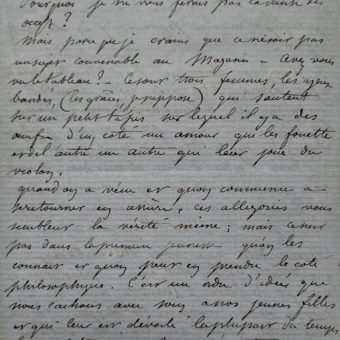 Pourquoi je ne vous ferais pas la danse des
œufs?
Mais parceque je crains que ce ne soit pas
un sujet convenable au Magasin – avez vous
vu le tableau? – Ce sont trois femmes, les yeux
bandés, (les grâces, je suppose) qui sautent
sur un petit tapis sur lequel il y a des
œufs d'un coté un amour qui les fouette
et de l'autre un autre qui leur joue du
violon,
quand on a vécu et qu'on commence a
se retourner en arrière, ces allégories vous
semblent la vérité même; mais ce n'est
pas dans la première jeunesse qu'on les
connait et qu'on peut en prendre le coté
philosophique. C'est un ordre d'idées que
nous cachons avec soin a nos jeunes filles
et qui leur est dévoilé la plupart du temps